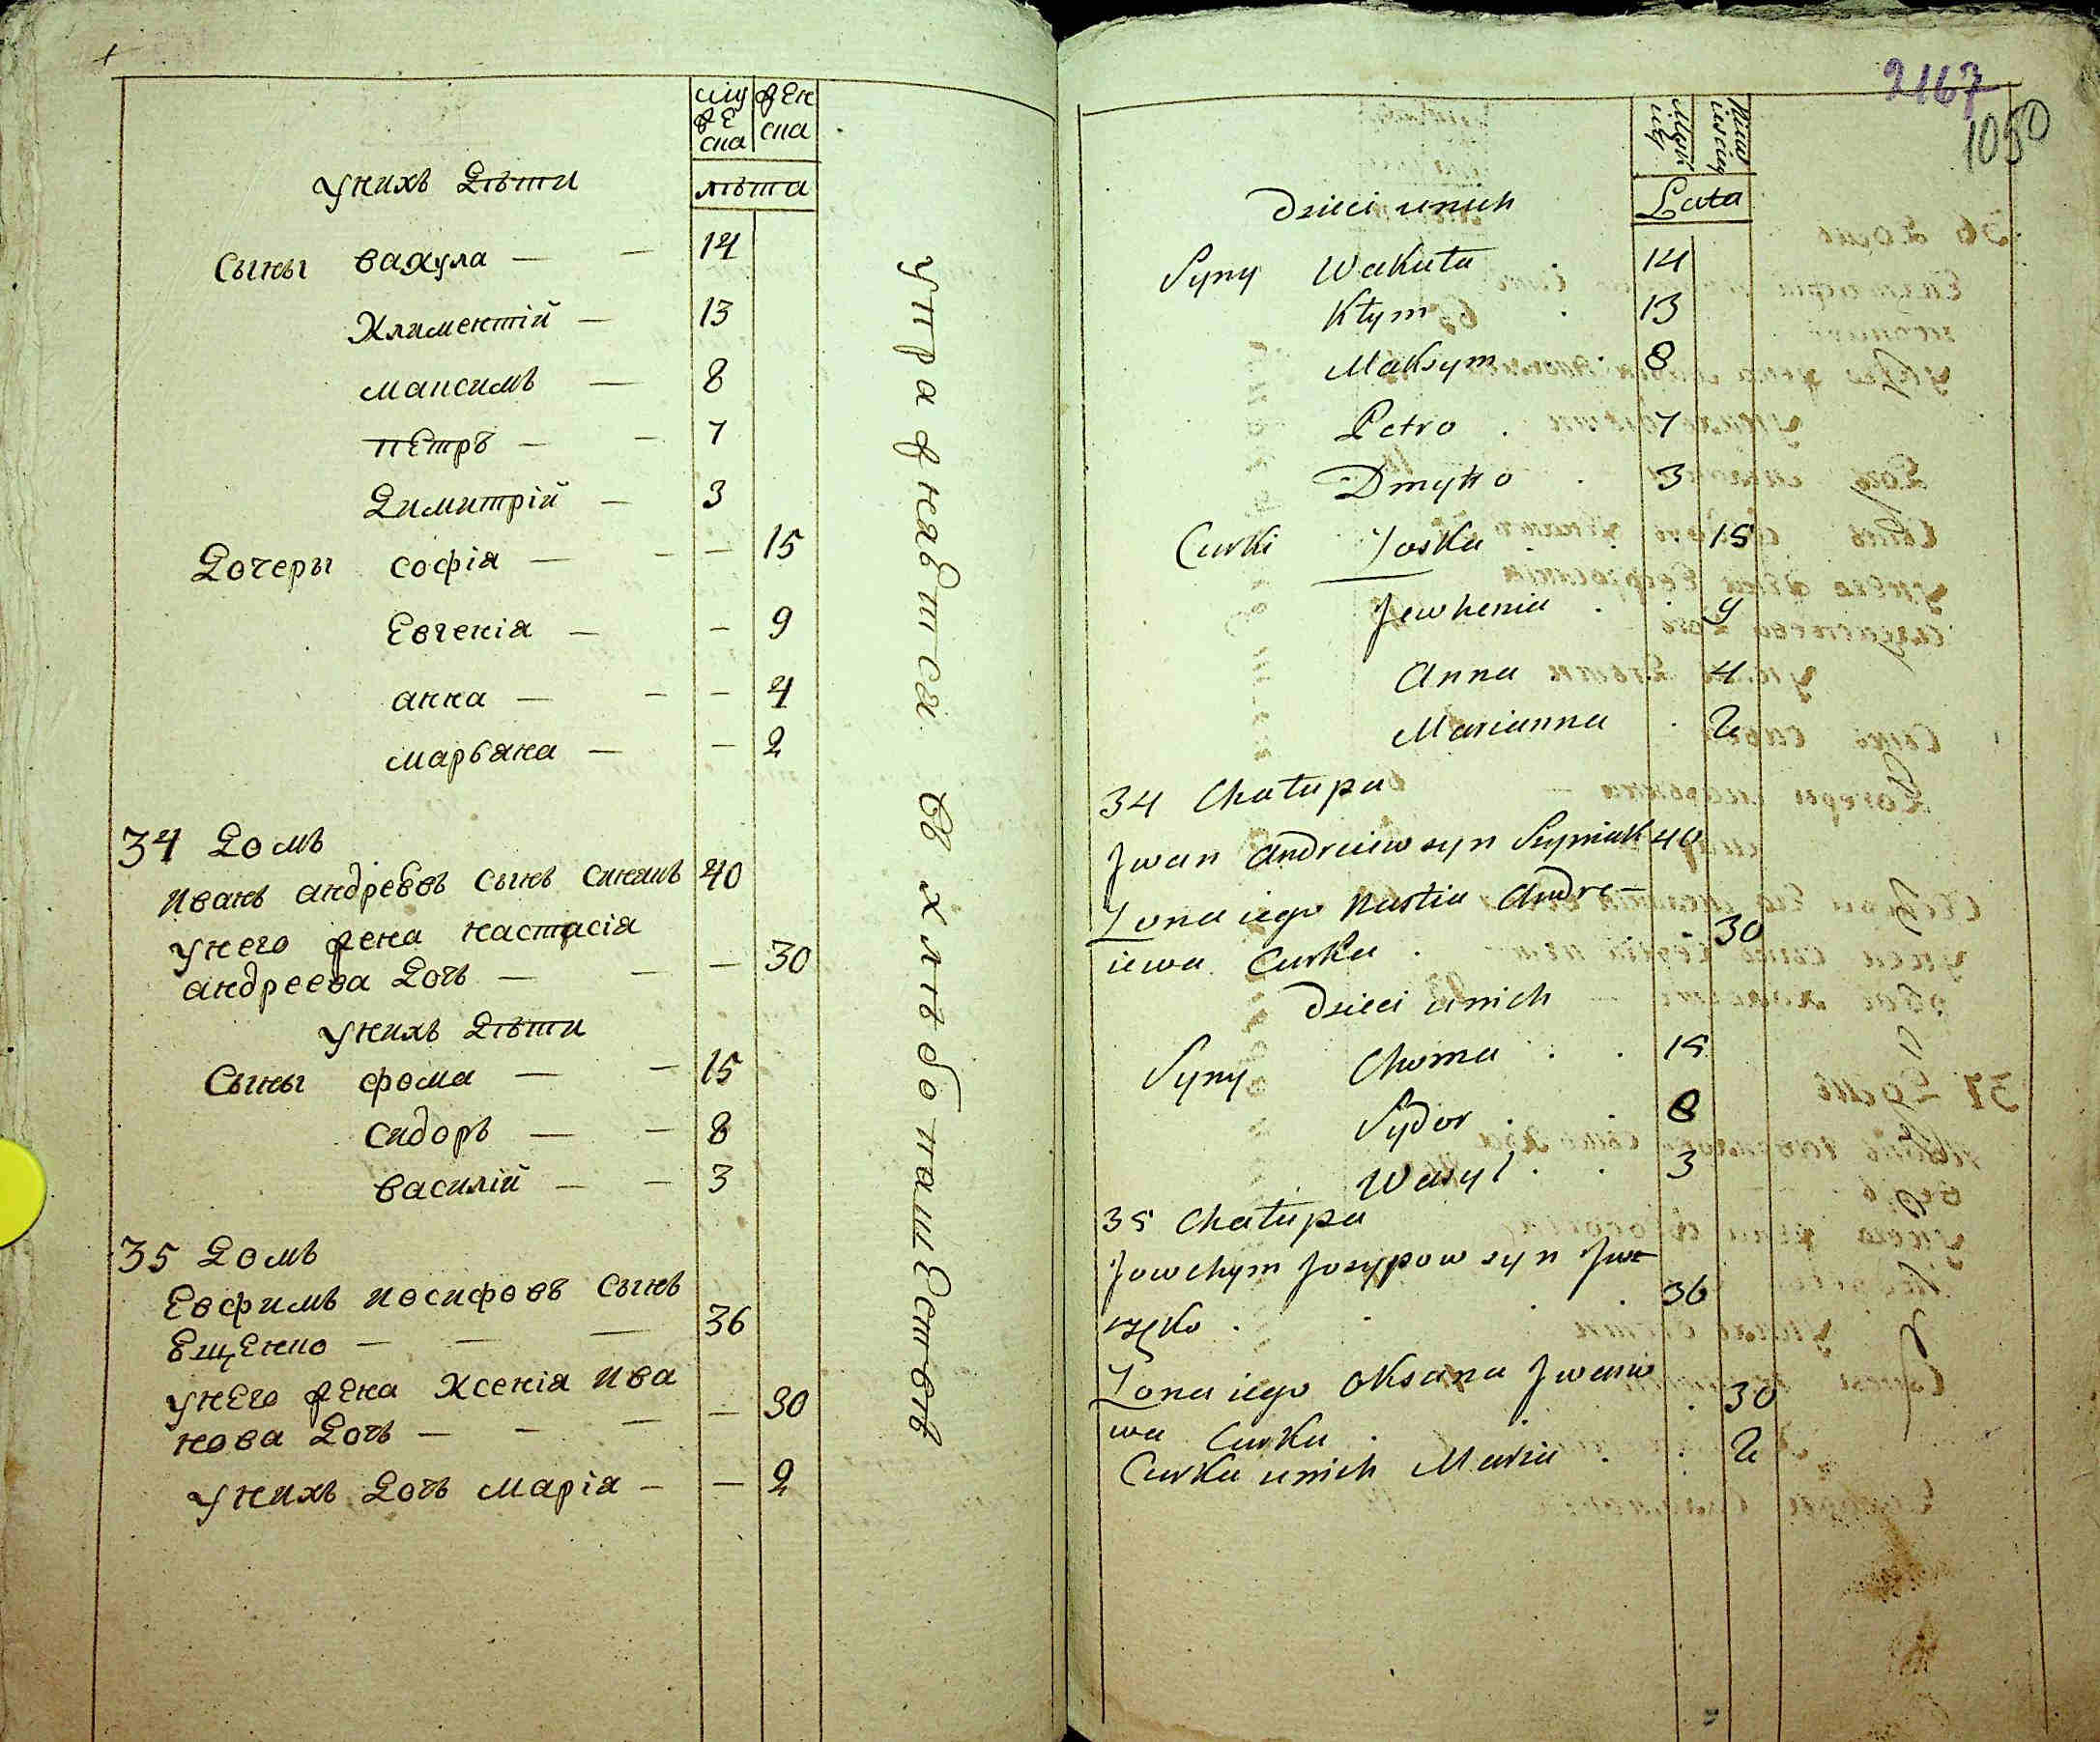 муже ска
жен ска
лѣта
у нихъ дѣти
сыны вакула — — 14
климентій — 13
максимъ — 8
петръ — — 7
димитрій — 3
дочеры софія — — — 15
Евгенія — — 9
анна — — — 4
марьяна — — 2
34 домъ
иванъ андрѣевъ сынъ синякъ 40
у него жена настасія
андреева дочь — — — 30
у нихъ дѣти
сыны фома — — 15
сидоръ — — 8
василій — — 3
35 домъ
Евфимъ иосифовъ сынъ
Ещенко — — — 36
у него жена ксенія ива
нова дочь — — — — 30
у нихъ дочь марія — — 2
упражняется въ хлѣбопашествѣ
2167
1050
Lata
Dzieci unich
Syny Wakuła . 14
Kłym . 13
Maksym . 8
Petro . 7
Dmytro . 3
Curki Joska . . . 15
Jewhenia . . 9
Anna 4
Marianna . 2
34 Chałupa
Jwan Andreiew syn Syniak 40
Zona iego Nastia Andre-
iewa Curka . . . 30
Dzieci unich
Syny Choma . . 15
Sydor . . 8
Wasyl . . 3
35 Chałupa
Jowchym Josypow syn
. . . 36
Zona iego Oksana Jwano
wa Curka . . 30
Curka unich Maria . . 2